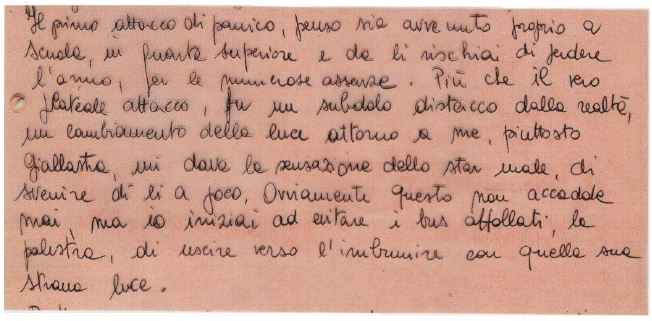 Il primo attacco di panico, penso sia avvenuto proprio a
scuola, in quarta superiore e da lì rischiai di perdere
l'anno, per le numerose assenze. Più che il vero
plateale attacco, fu un subdolo distacco dalla realtà,
un cambiamento della luce attorno a me, piuttosto
giallastra, mi dava la sensazione dello star male, di
svenire di lì a poco. Ovviamente questo non accadde
mai, ma io iniziai ad evitare i bus affollati, la
palestra, di uscire verso l'imbrunire con quella sua
strana luce.